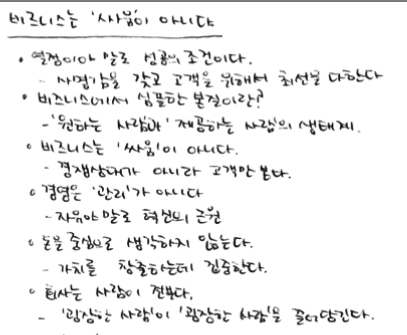 비즈니스는 '싸움'이 아니다
• 열정이야 말로 성공의 조건이다.
- 사명감을 갖고 고객을 위해서 최선을 다한다
• 비즈니스에서 심플한 본질이란?
- '원하는 사람과' '제공하는 사람'의 생태계.
• 비즈니스는 '싸움'이 아니다.
- 경쟁상대가 아니라 고객만 본다.
• 경영은 '관리'가 아니다
- 자유야 말로 혁신의 근원
• 돈을 중심으로 생각하지 않는다.
- 가치를 창출하는데 집중한다.
• 회사는 사람이 전부다.
- '굉장한 사람'이 '굉장한 사람'을 끌어당긴다.